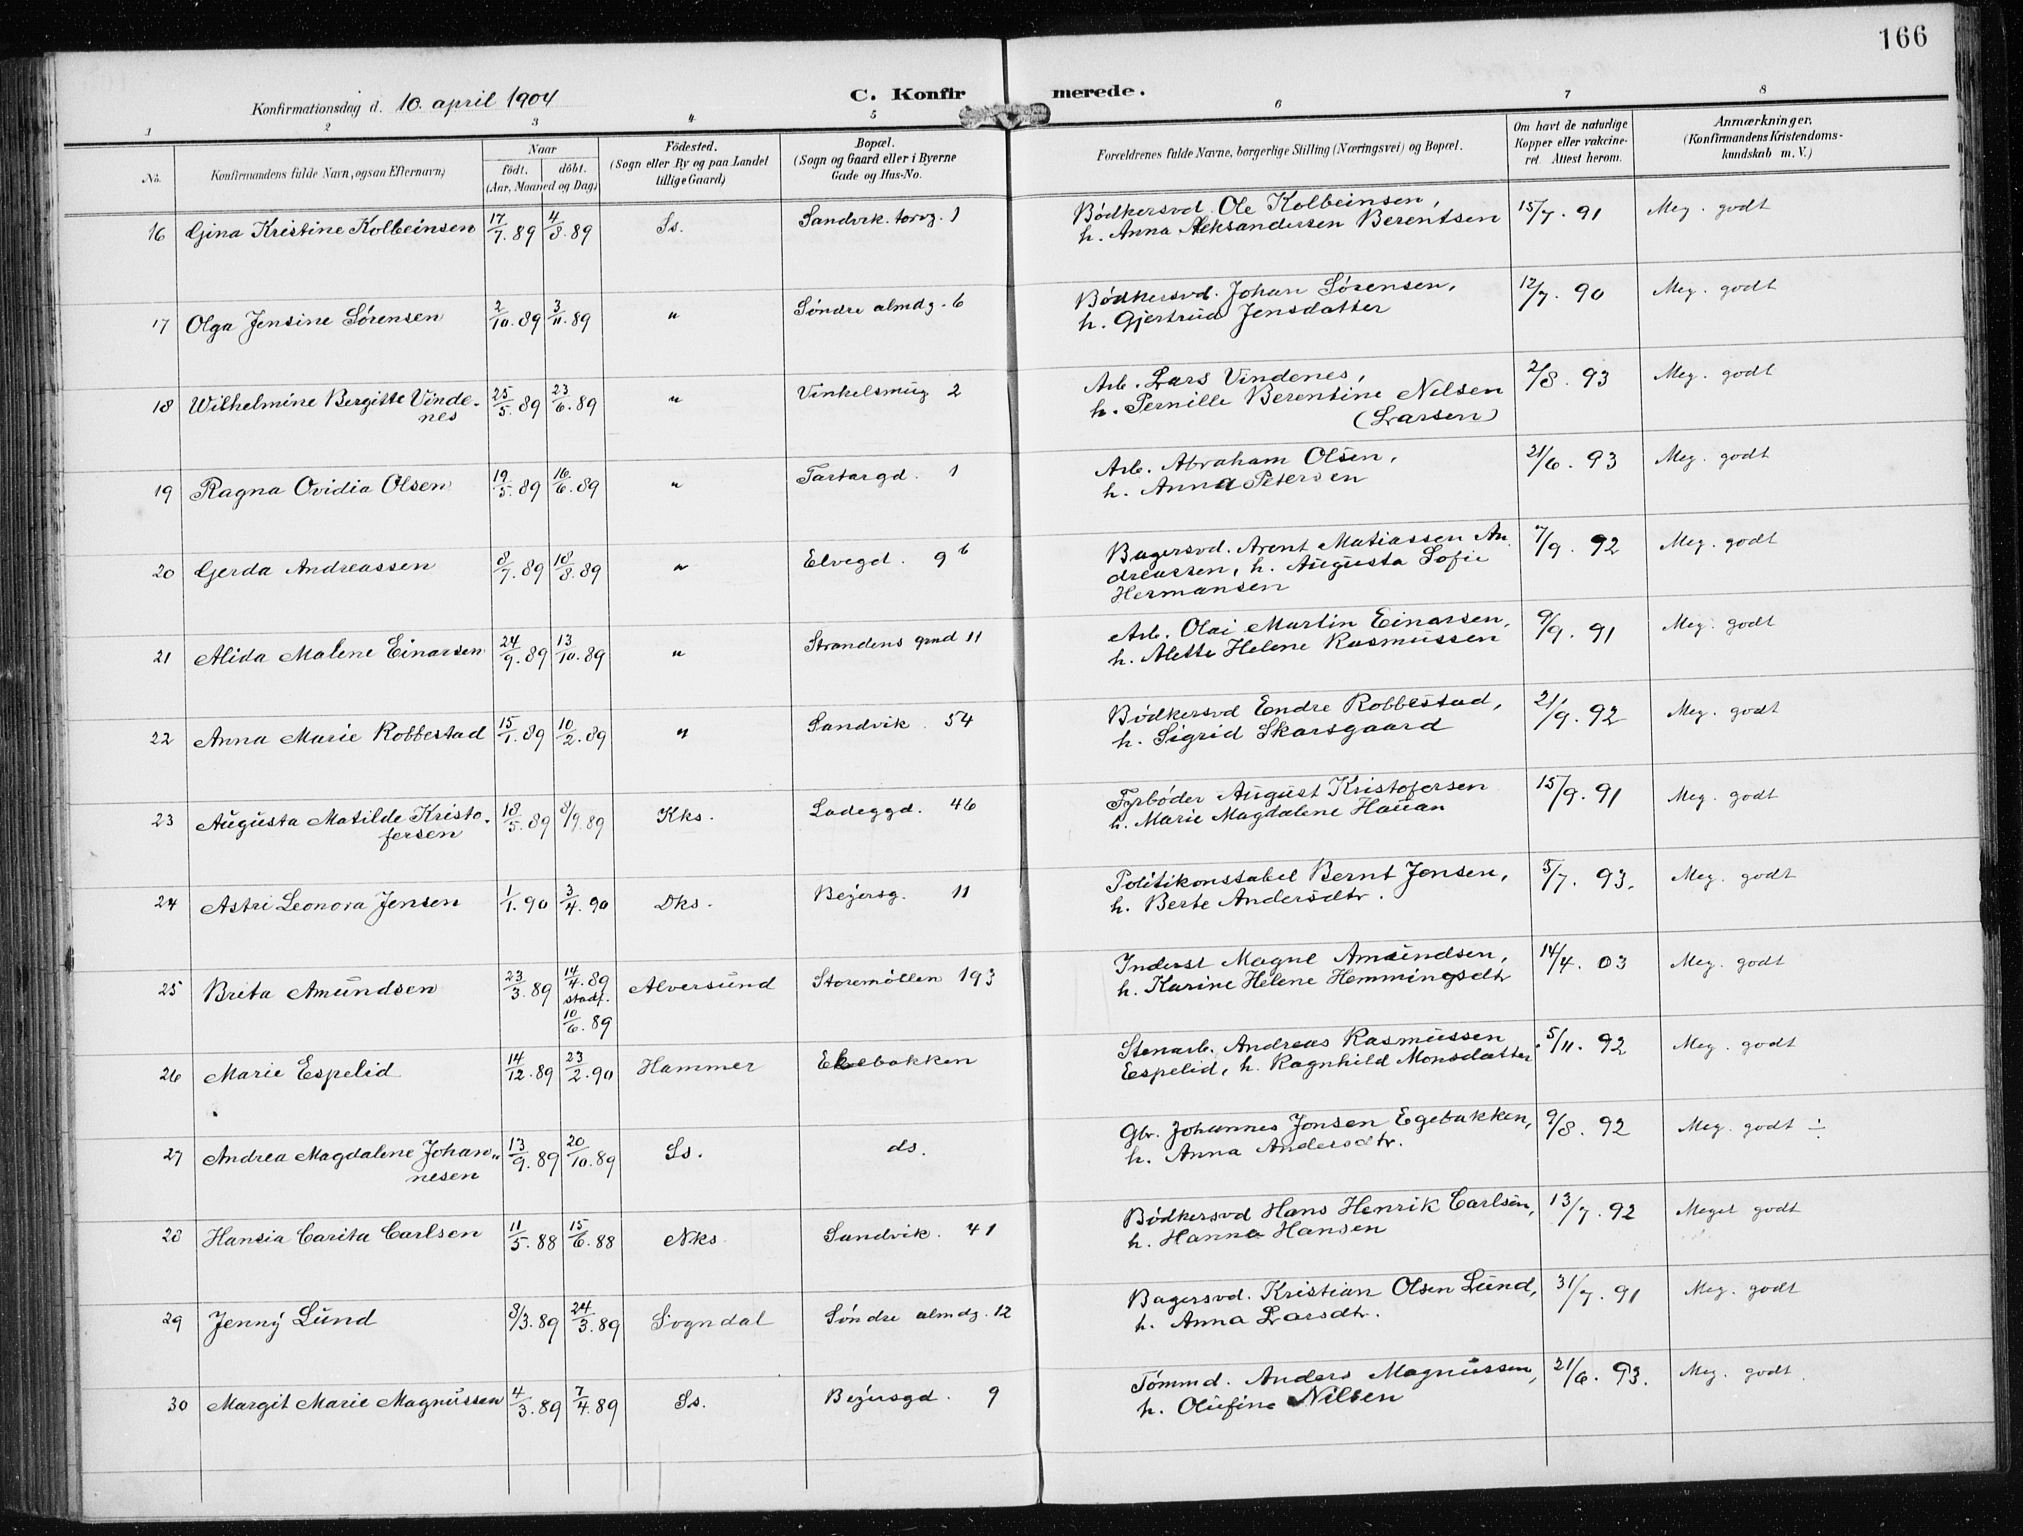 166
Konfirmationsdag d. 10. april 1904
C. Konfirmerede.
1 2 3 4 5 6 7 8
No. Konfirmandens fulde Navn, ogsaa Efternavn) Naar født. døbt. (Aar, Maaned og Dag) Fødested. (Sogn eller By og paa Landet tillige Gaard) Bopæl. (Sogn og Gaard eller i Byerne Gade og Hus-No. Forældrenes fulde Navne, borgerlige Stilling (Næringsvei) og Bopæl. Om havt de naturlige Kopper eller vakcineret. Attest herom. Anmærkninger, (Konfirmandens Kristendomskundskab m. V.)
16 Gina Kristine Kolbeinsen 17/7.89 4/8.89 Ss. Sandvik. torvg. 1 Bødkersvd. Ole Kolbeinsen, 15/7.91 Meg. godt
h. Anna Aleksandersen Berentsen
17 Olga Jensine Sørensen 2/10.89 3/11.89 " Søndre almdg. 6 Bødkersvd. Johan Sørensen, 12/7.90 Meg. godt
h. Gjertrud Jensdatter
18 Wilhelmine Bergitte Vinde- 25/5.89 23/6.89 " Vinkelsmug 2 Arb. Lars Vindenes, 2/8.93 Meg. godt
nes h. Pernille Berentine Nilsen
(Larsen)
19 Ragna Ovidia Olsen 19/5.89 16/6.89 " Tartargd. 1 Arb. Abraham Olsen, 21/6.93 Meg. godt
h. Anna Petersen
20 Gerda Andreassen 8/7.89 18/8.89 " Elvegd. 9 b Bagersvd. Arent Matiassen An- 7/9.92 Meg. godt
dreassen, h. Augusta Sofie
Hermansen
21 Alida Malene Einarsen 24/9.89 13/10.89 " Strandens grnd 11 Arb. Olai Martin Einarsen, 9/9.91 Meg. godt
h. Alette Helene Rasmussen
22 Anna Marie Robbestad 15/1.89 10/2.89 " Sandvik. 54 Bødkersvd Endre Robbestad, 21/9.92 Meg. godt
h. Sigrid Skarsgaard
23 Augusta Matilde Kristo- 18/5.89 8/9.89 Kks. Ladeggd. 46 Fyrbøder August Kristofersen 15/9.91 Meg. godt
fersen h. Marie Magdalene Hauan
24 Astri Leonora Jensen 1/1.90 3/4.90 Dks. Bejersg. 11 Politikonstabel Bernt Jensen, 5/7.93. Meg. godt
h. Berte Andersdtr.
25 Brita Amundsen 23/3.89 14/4.89 Alversund Storemøllen 193 Inderst Magne Amundsen, 14/4.03 Meg. godt
stadf. h. Karine Helene Hemmingsdtr
10/6.89
26 Marie Espelid 14/12.89 23/2.90 Hammer Ekebakken Stenarb. Andreas Rasmussen 5/11.92 Meg. godt
Espelid, h. Ragnhild Monsdatter
27 Andrea Magdalene Johan- 13/9.89 20/10.89 Ss. ds. Gbr. Johannes Jonsen Egebakken, 9/8.92 Meg. godt ÷
nesen h. Anna Andersdtr.
28 Hansia Carita Carlsen 11/5.88 15/6.88 Nks. Sandvik. 41 Bødkersvd Hans Henrik Carlsen, 13/7.92 Meget godt
h. Hanna Hansen
29 Jenny Lund 8/3.89 24/3.89 Sogndal Søndre almdg. 12 Bagersvd. Kristian Olsen Lund, 31/7.91 Meg. godt
h. Anna Larsdtr.
30 Margit Marie Magnussen 4/3.89 7/4.89 Ss. Bejersgd. 9 Tømmd. Anders Magnussen, 21/6.93. Meg. godt.
h. Olufine Nilsen